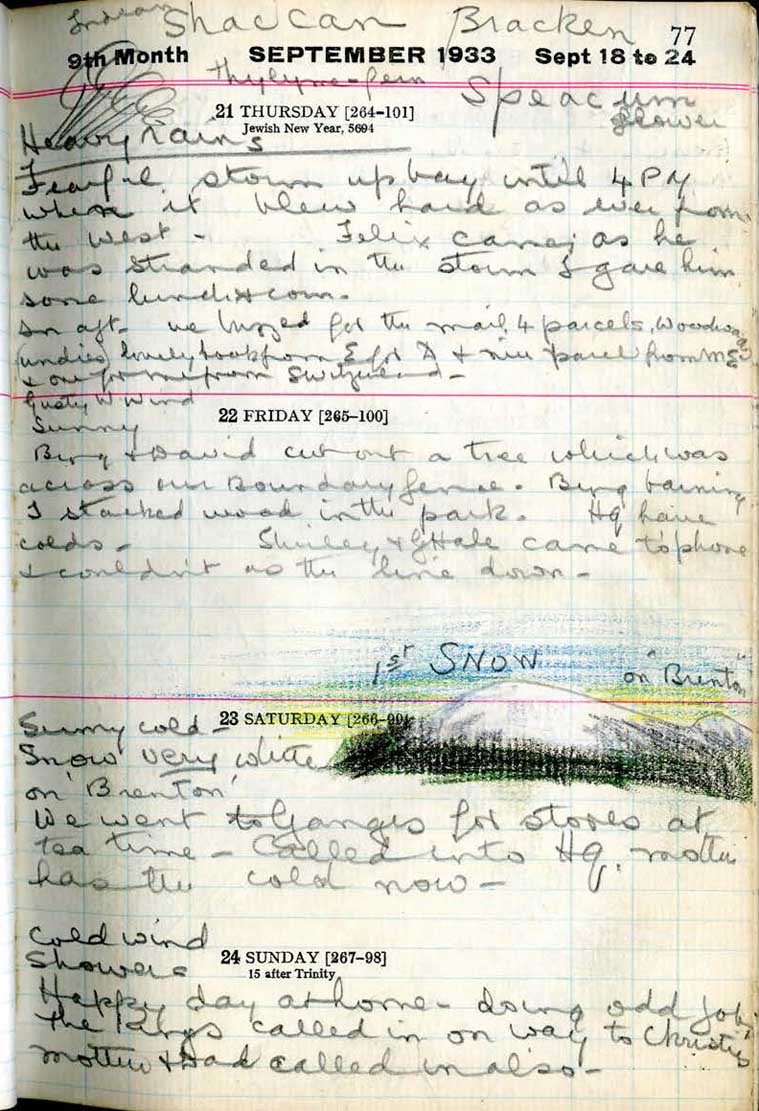 Indian Shaccan Bracken 77
9th Month SEPTEMBER 1933 Sept 18 to 24
fern Speacum
flower
21 THURSDAY [264-101]
Jewish New Year, 5694
Heavy rains
Fearful storm up bay until 4 PM
when it blew hard as ever from
the West - Felix came; as he
was stranded in the storm I gave him
some lunch
In aft. we buzzed for the mail, 4 parcels, Woodwards
(undies) lovely book from E for & nice parcel from
& one for me from Switzerland -
Gusty W Wind
22 FRIDAY [265-100]
Sunny
& David cut out a tree which was
across our Boundary fence.
I stacked wood in the park. HQ have
colds - Shirley & G Hale came to phone
& couldn't as the line down -
1st SNOW on "Brenton"
23 SATURDAY [266-99]
Sunny cold -
Snow very white
on 'Brenton'
We went to Ganges for stores at
tea time - Called into HQ, mother
has the cold now -
Cold wind
24 SUNDAY [267-98]
Showers
15 after Trinity
Happy day at home - doing odd jobs
The Kings called in on way to Christies
Mother & Dad called in also -